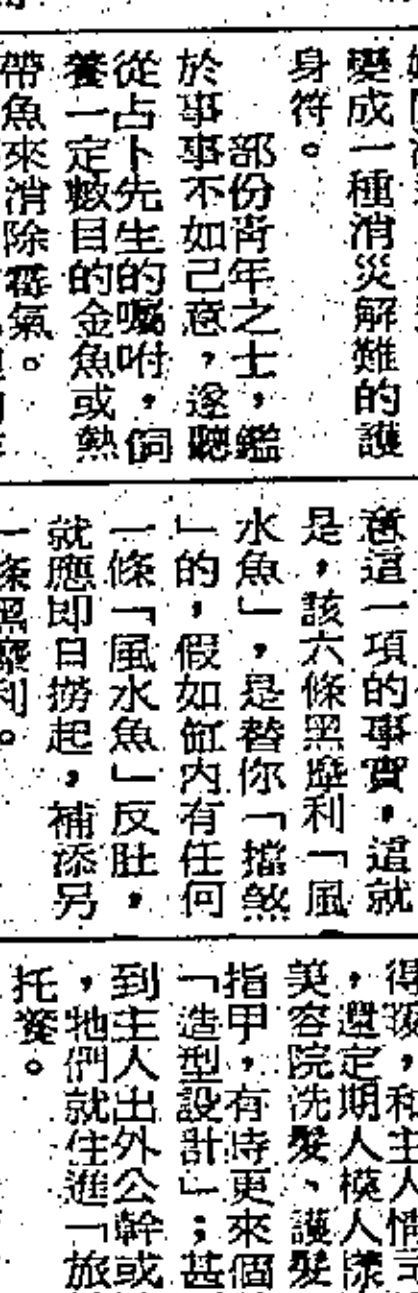 變成一種消災解難的護
身符。
部份青年之士,鑑
於事事不如己意,遂聽
從占卜先生的囑咐,飼
養一定數目的金魚或熱
帶魚來消除霉氣。
意這一項的事實,這就
是,該六條黑摩利「風
水魚」,是替你「擋煞
」的,假如缸內有任何
一條「風水魚」反肚,
就應即日撈起,補添另
一條黑摩利。
,還定期人模人樣
美容院洗髮、護髮
指甲,有時更來個
「造型設計」;甚
到主人出外公幹或
,牠們就住進「旅
托養。